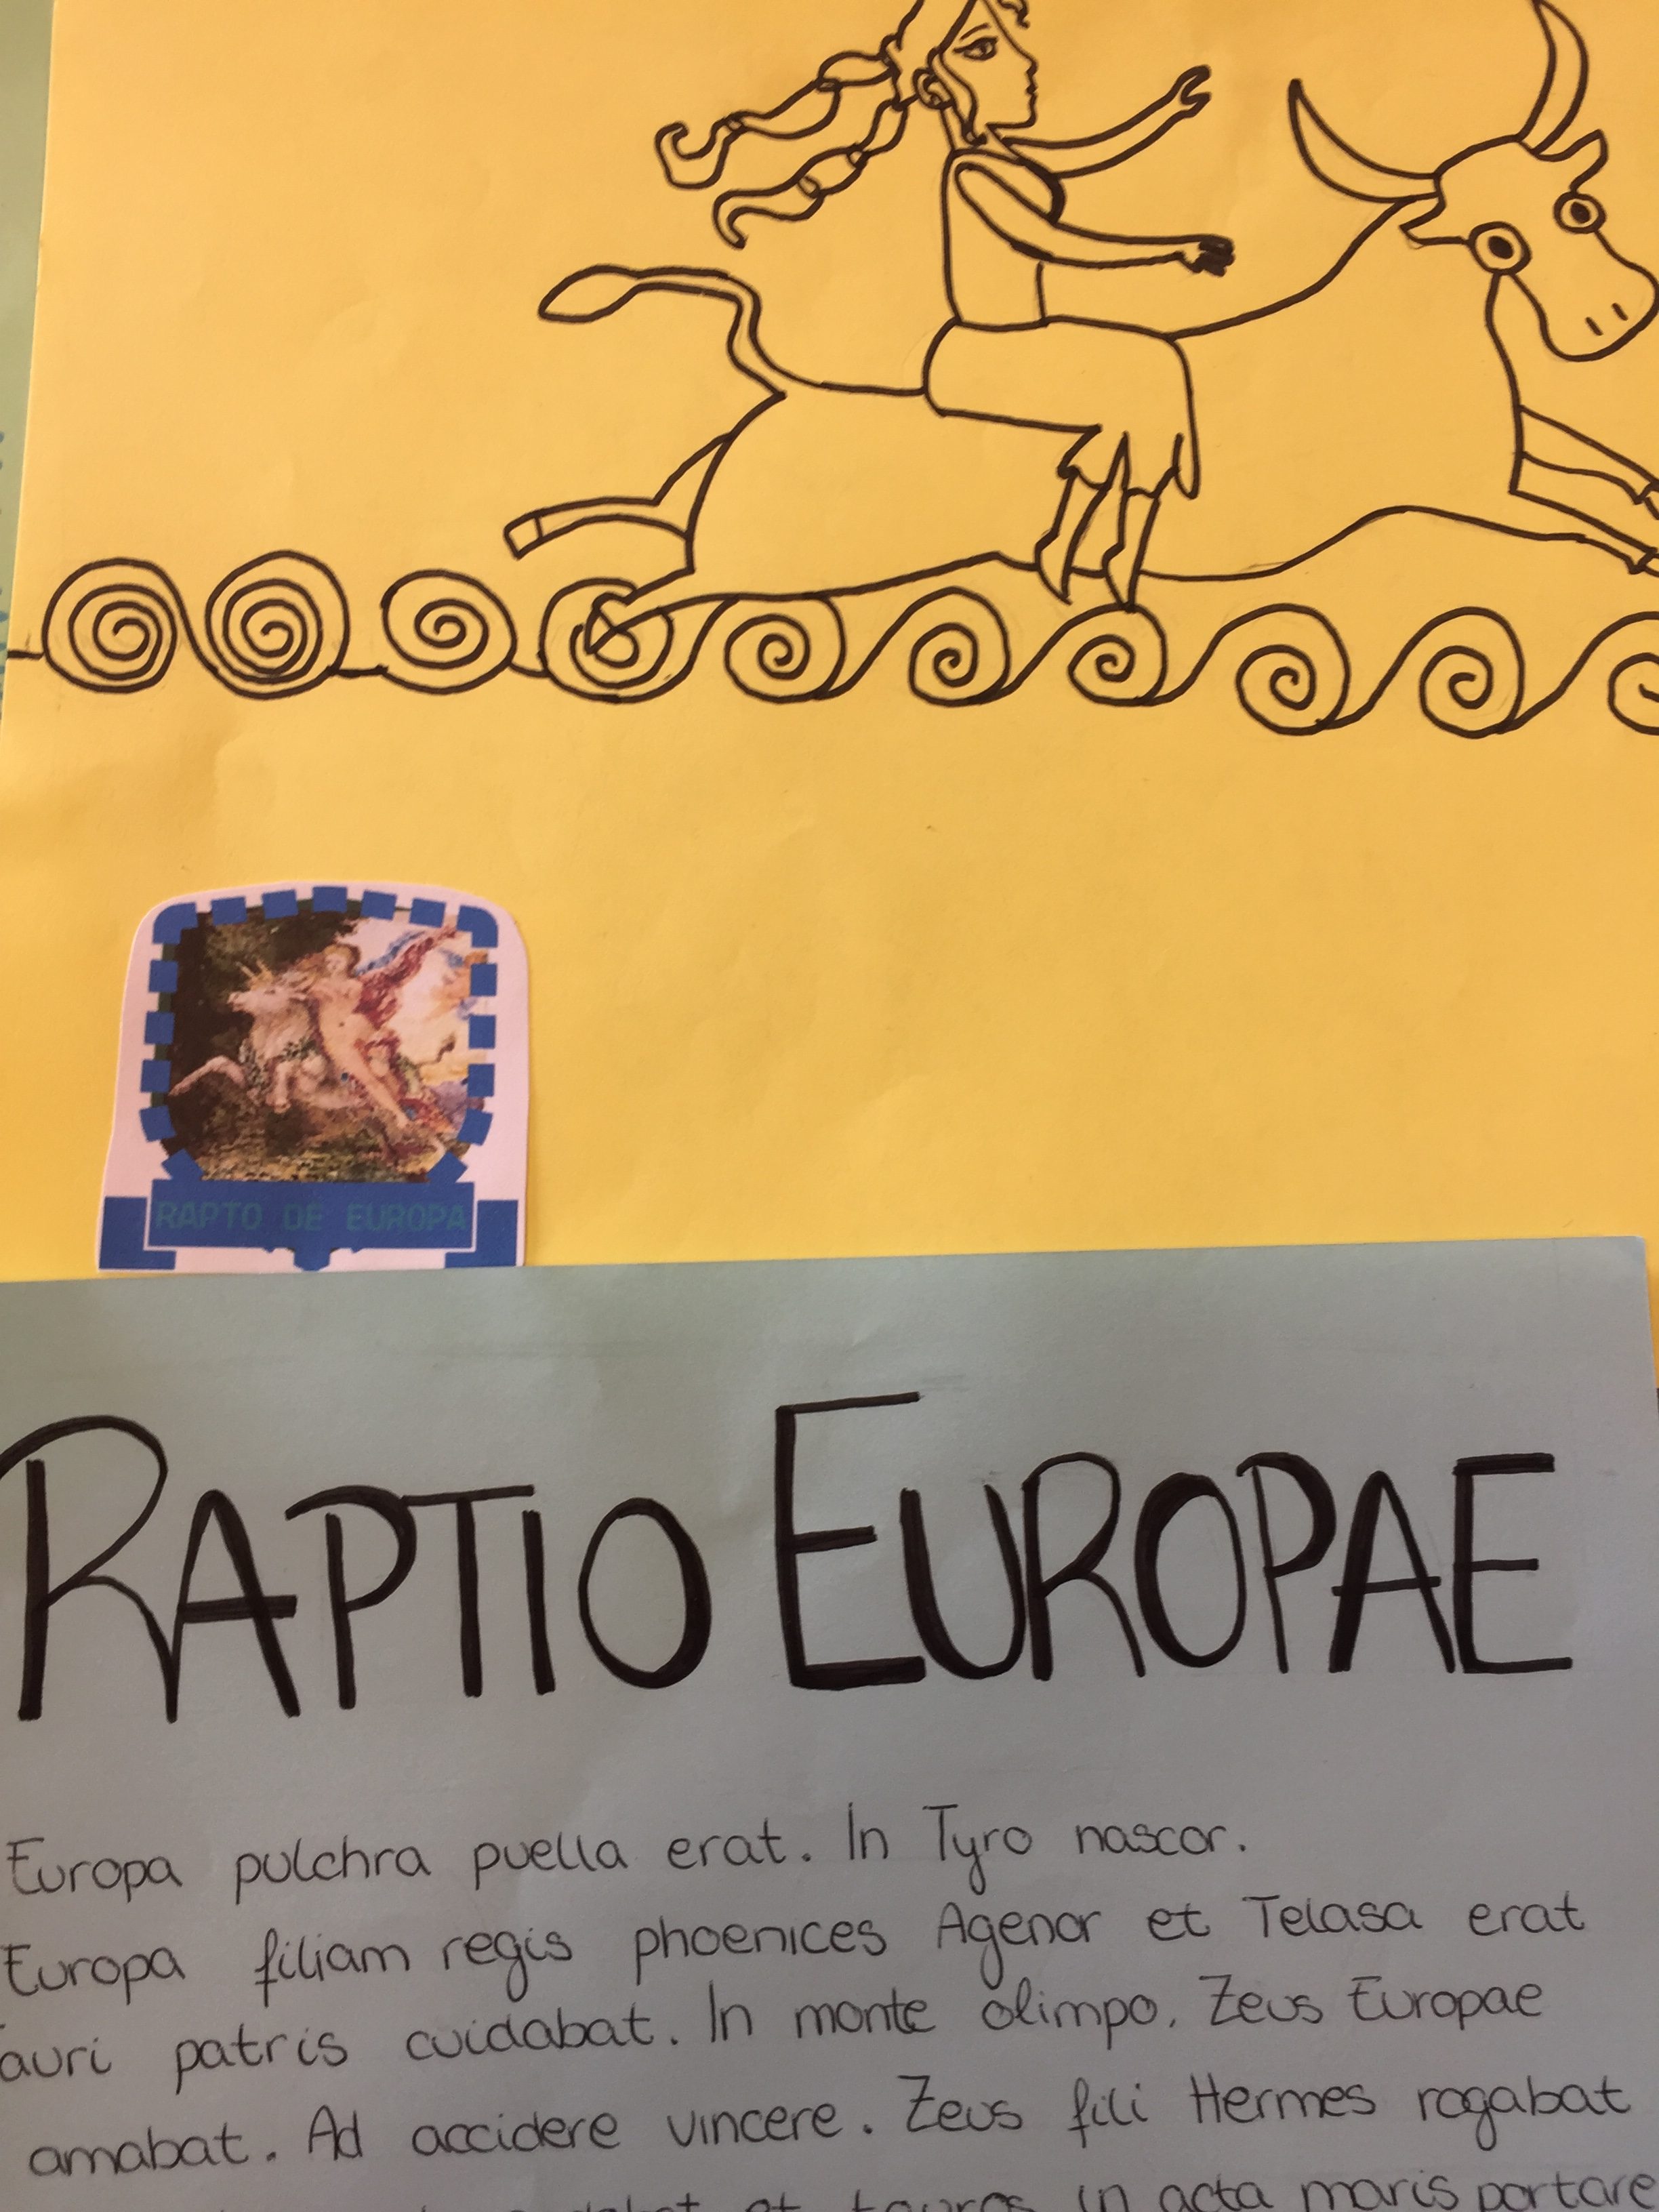 RAPTO DE EUROPA
RAPTIO EUROPAE
Europa pulchra puella erat. In Tyro nascor.
Europa filiam regis phoenices Agenor et Telasa erat
auri patris cuidabat. In monte olimpo, Zeus Europae
amabat. Ad accidere vincere. Zeus fili Hermes rogabat
et tauros in acta maris portare